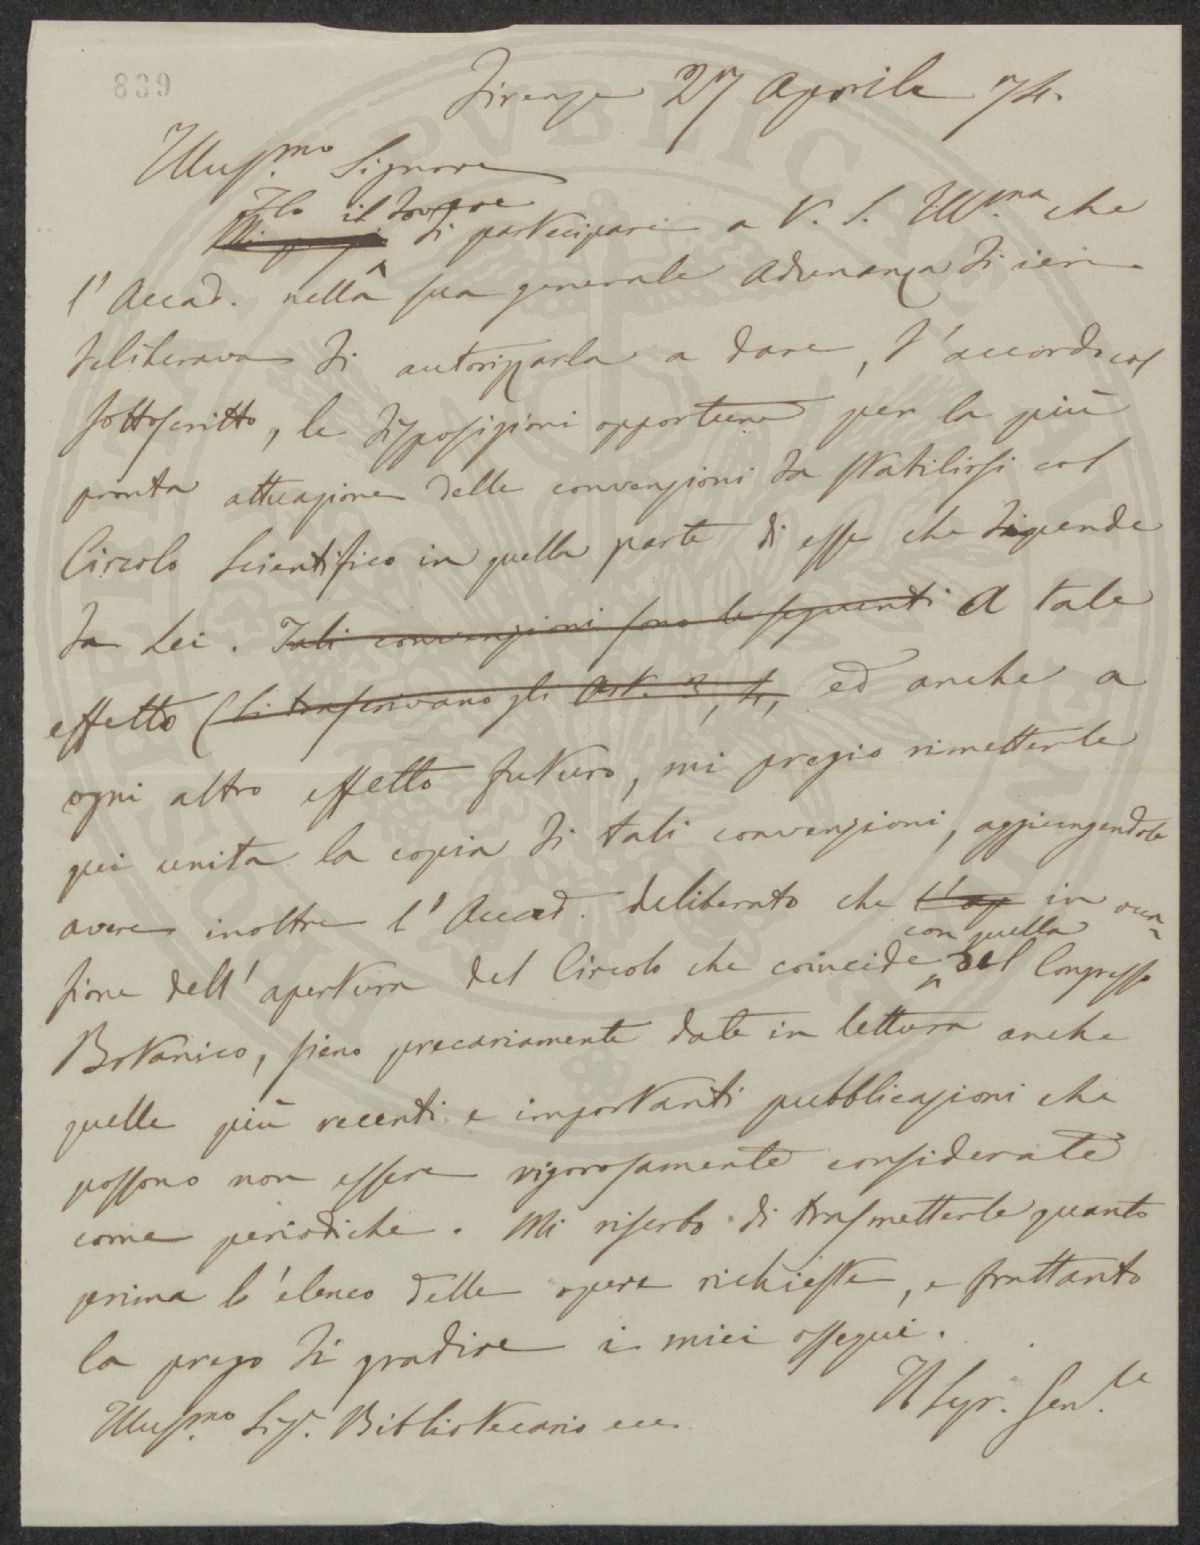 839
Firenze 27 Aprile 74.
Illus.mo Signore
Ho il dovere
Mi pregio di partecipare a V. S. Ill.ma che
l'Accad. nella sua generale Adunanza di ieri
deliberava di autorizzarla a dare, d'accordo col
sottoscritto, le disposizioni opportune per la più
pronta attuazione delle convenzioni da stabilirsi col
Circolo Scientifico in quella parte di esse che dipende
da Lei. Tali convenzioni sono le seguenti A tale
effetto (si trascrivano gli Art. 3, 4, ed anche a
ogni altro effetto futuro, mi pregio rimetterle
qui unita la copia di tali convenzioni, aggiungendole
avere inoltre l'Accad. deliberato che l'ap in occa-
con quella
sione dell'apertura del Circolo che coincide del Congresso
Botanico, sieno precariamente date in lettura anche
quelle più recenti e importanti pubblicazioni che
possono non essere rigorosamente considerate
come periodiche. Mi riserbo di trasmetterle quanto
prima l'elenco delle opere richieste, e frattanto
la prego di gradire i miei ossequi.
Il Segr. Gen.le
Illus.mo Sig. Bibliotecario ecc.